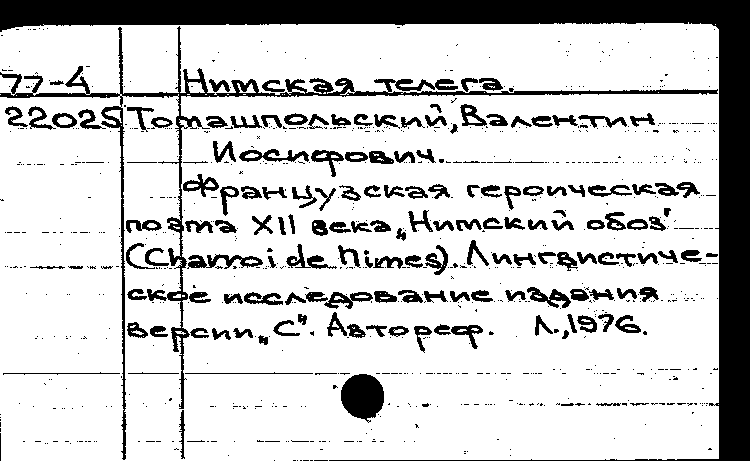 77-4 Нимская телега.
22025 Томашпольский, Валентин
Иосифович.
Французская героическая
поэма XII века „Нимский обоз"
(Charroi de Nimes). Лингвистиче-
ское исследование издания
версии „С". Автореф. Л., 1976.